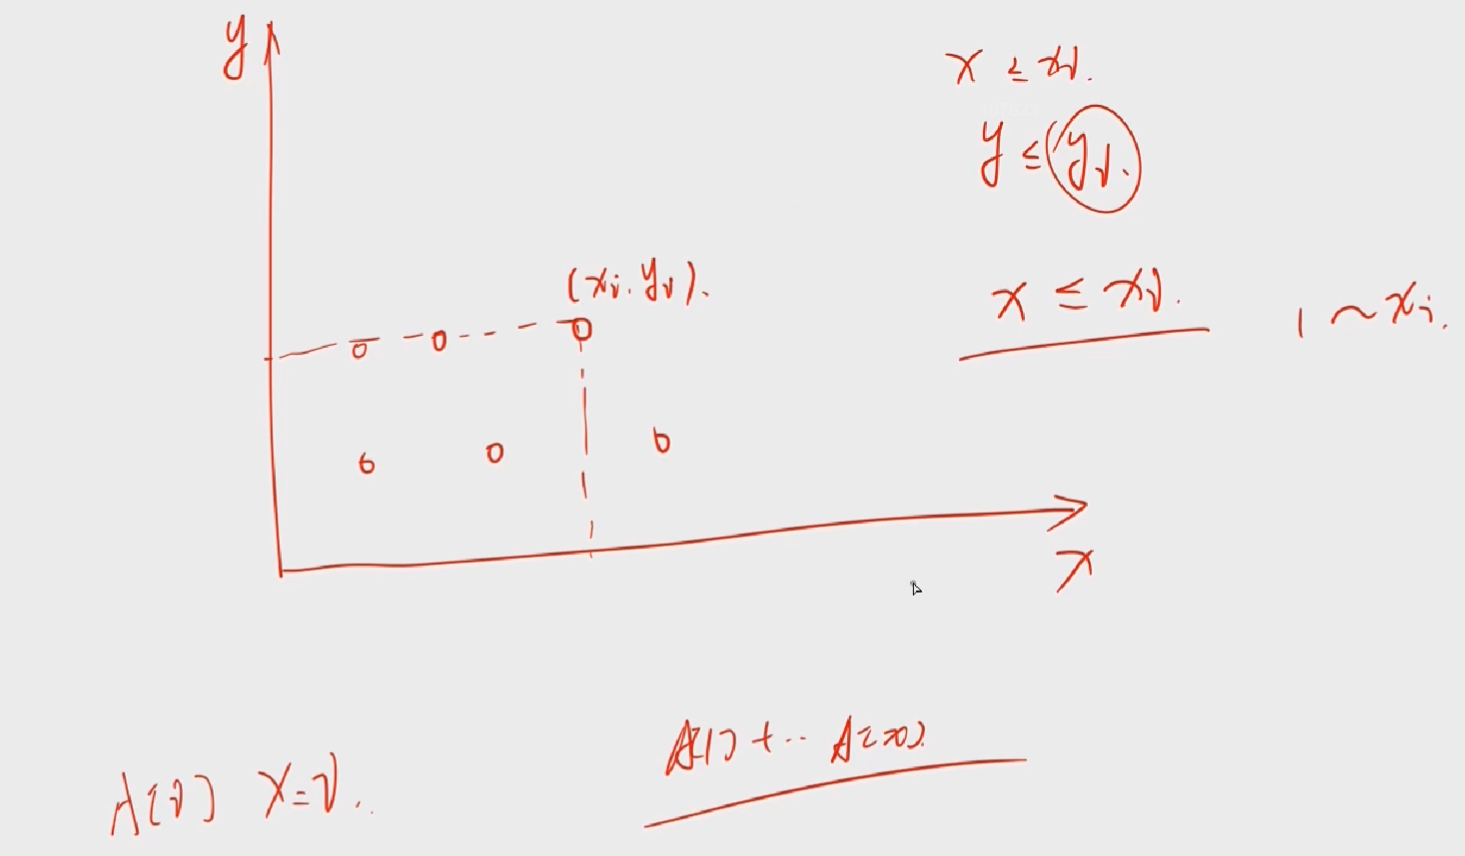 y
x ≤ xi.
y ≤ yi.
(xi. yi).
x ≤ xi.
1 ~ xi.
x
A[1] + ·· A[x]
A[i] x=i..